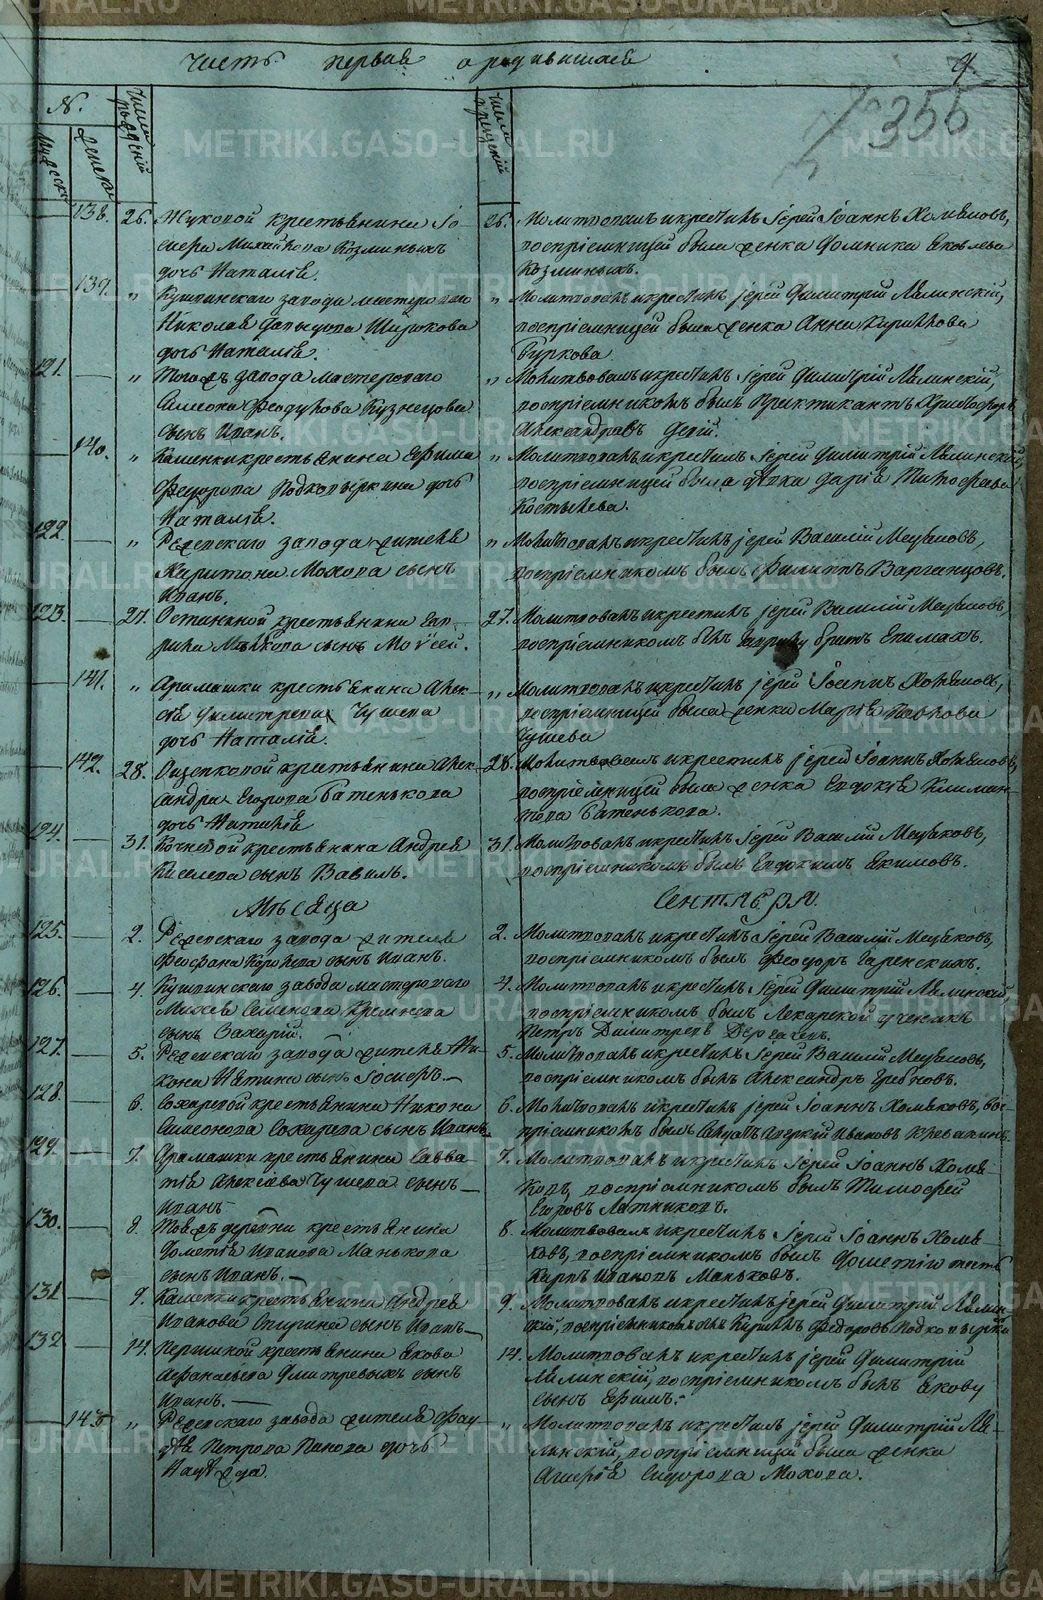 Часть первая о родившихся
9
355
N.
Числа рождений
Числа крещений
Мужеска
Женска
138. 26. Жуковой крестьянина Іо-
сифа Михайлова Козминыхъ
дочь Наталія.
26. Молитвовалъ и крестилъ Іерей Іоаннъ Хомяковъ,
воспріемницей была женка Домника Яковлева
Козминыхъ.
139. „ Кушвинскаго завода мастероваго
Николая Давыдова Широкова
дочь Наталія.
„ Молитвовалъ и крестилъ Іерей Димитрій Лялинскій,
воспріемницей была женка Анна Кирилова
Буркова.
121. „ Тогожъ завода мастероваго
Симеона Феодулова Кузнецова
сынъ Иванъ.
„ Молитвовалъ и крестилъ Іерей Димитрій Лялинскій,
воспріемникомъ былъ Практикантъ Христофоръ
Александровъ
140. „ Каменки крестьянина Ефима
Федорова Подкорыткина дочь
Наталія.
„ Молитвовалъ и крестилъ Іерей Димитрій Лялинскій,
воспріемницей была дѣвка Дарія Тимофеева
Костылева.
122. „ Режевскаго завода жителя
Харитона Мохова сынъ
Иванъ.
„ Молитвовалъ и крестилъ Іерей Василій
воспріемникомъ былъ Филиппъ Варганцовъ.
123. 27. Останиной крестьянина Гав-
рила Малкова сынъ Моѵсей.
27. Молитвовалъ и крестилъ Іерей Василій
воспріемникомъ былъ братъ Епимахъ.
141. „ Арамашки крестьянина Алек-
сія Димитрева Чушева
дочь Наталія.
„ Молитвовалъ и крестилъ Іерей Іоаннъ Хомяковъ,
воспріемницей была женка Марія Павлова
Чушева
142. 28. Ощепковой крестьянина Алек-
сандра Егорова Батенькова
дочь Наталія
28. Молитвовалъ и крестилъ Іерей Іоаннъ Хомяковъ,
воспріемницей была женка Евдокія Климан-
това Батенькова.
124. 31. Кочневой крестьянина Андрея
Киселева сынъ Вавилъ.
31. Молитвовалъ и крестилъ Іерей Василій
воспріемникомъ былъ Евдокимъ Екимовъ.
Мѣсяца Сентября.
125. 2. Режевскаго завода жителя
Феофана Королева сынъ Иванъ.
2. Молитвовалъ и крестилъ Іерей Василій
воспріемникомъ былъ Феодоръ Гаренскихъ.
126. 4. Кушвинскаго завода мастероваго
Михея Семенова Кремнева
сынъ Захарій.
4. Молитвовалъ и крестилъ Іерей Димитрій Лялинскій
воспріемникомъ былъ Лекарской ученикъ
Петръ Димитрев
127. 5. Режевскаго завода жителя Ни-
кона сынъ Іосифъ.
5. Молитвовалъ и крестилъ Іерей Василій
воспріемникомъ былъ Александръ Гребновъ.
128. 6. Сохаревой крестьянина Никона
Симеонова Сохарева сынъ Иванъ.
6. Молитвовалъ и крестилъ Іерей Іоаннъ Хомяковъ, вос-
пріемникомъ былъ Аверкій Ивановъ
129. 7. Арамашки крестьянина Савва-
тія Алексіева Чушева сынъ
Иванъ
7. Молитвовалъ и крестилъ Іерей Іоаннъ Хомя-
ковъ, воспріемникомъ былъ Тимофей
Егоровъ Латниковъ.
130. 8. Тояжъ деревни крестьянина
Дометія Иванова Манькова
сынъ Иванъ.
8. Молитвовалъ и крестилъ Іерей Іоаннъ Хомя-
ковъ, воспріемникомъ былъ Дометію тесть
Карпъ Ивановъ Маньковъ.
131. 9. Каменки крестьянина Андрея
Иванова Спирина сынъ Иванъ
9. Молитвовалъ и крестилъ Іерей Димитрій Лялин-
скій, воспріемникомъ былъ Кирилъ Федоровъ
132. 14. Першиной крестьянина Якова
Афанасьева Дмитревыхъ сынъ
Иванъ.
14. Молитвовалъ и крестилъ Іерей Димитрій
Лялинскій, воспріемникомъ былъ Якову
сынъ Ефимъ.
143. „ Режевскаго завода жителя Фад-
дѣя Петрова Панова дочь
Надежда.
„ Молитвовалъ и крестилъ Іерей Димитрій Ля-
линскій, воспріемницей была женка
Сидорова Мохова.
METRIKI.GASO-URAL.RU